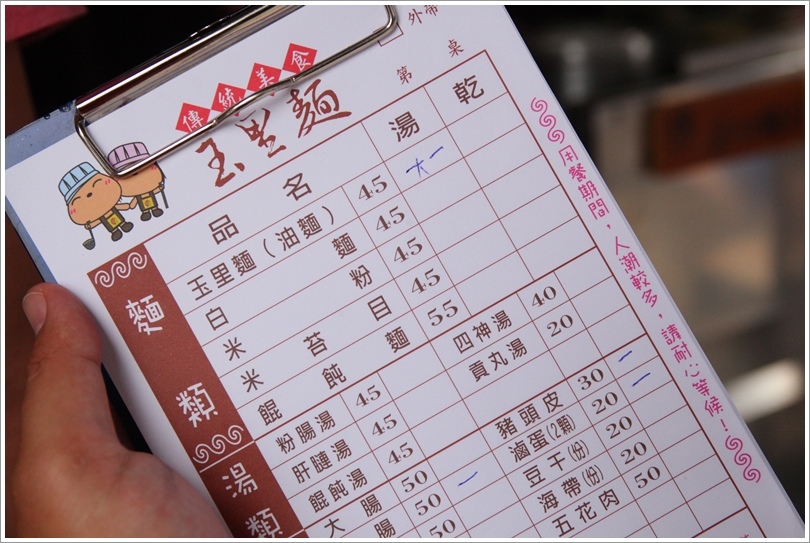 外帶
第 桌
傳統美食
玉里麵
品名 湯 乾
麵類
玉里麵（油麵） 45 大一
白麵 45
米粉 45
米苔目 45
餛飩麵 55
湯類
粉腸湯 45
肝連湯 45
餛飩湯 45
大腸 50 一
腸 50
50
四神湯 40
貢丸湯 20
豬頭皮 30 一
滷蛋(2顆) 20 一
豆干(份) 20
海帶(份) 20
五花肉 50
用餐期間，人潮較多，請耐心等候！